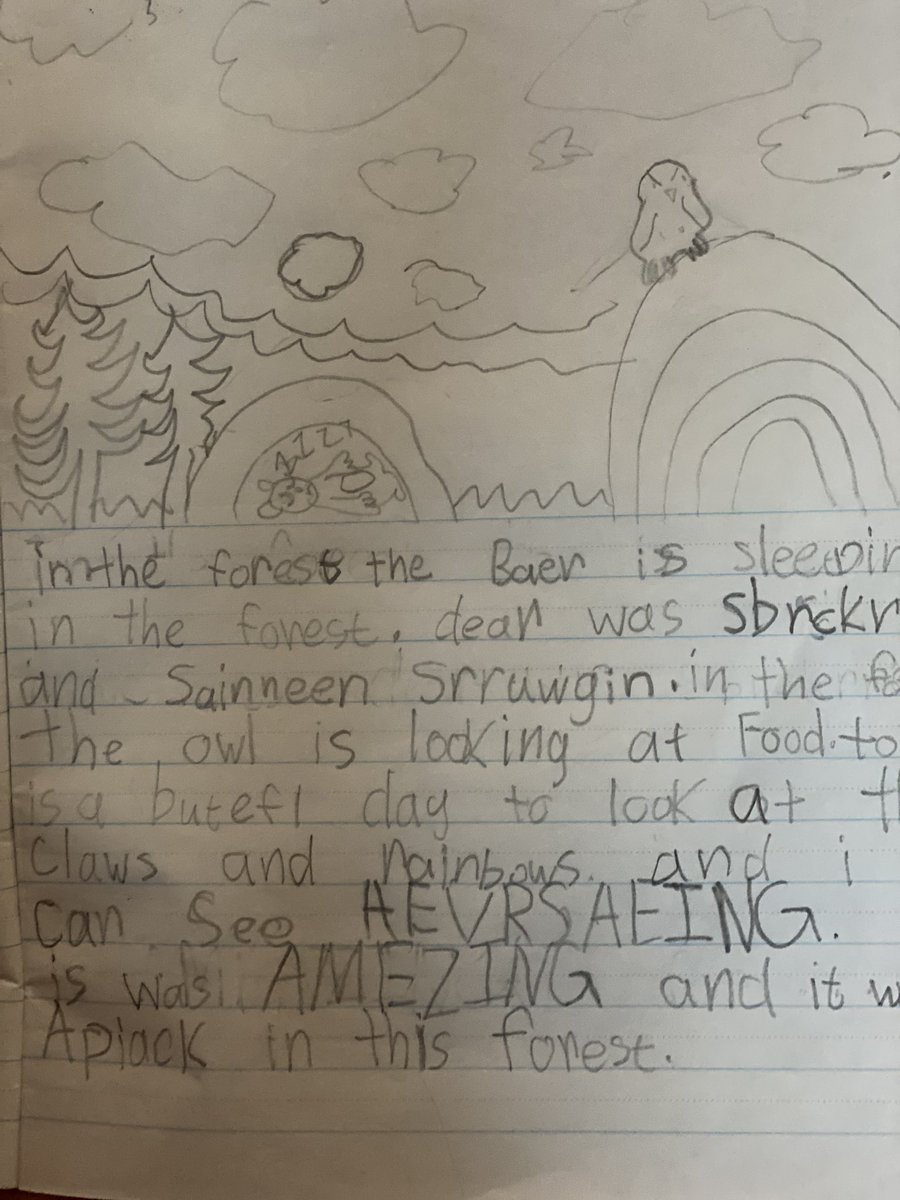 ZZZZ
in the forest the Baer is sleepin
in the forest. dear was
and Sainneen Srruwgin. in the fo
the owl is looking at Food. to
is a butefl day to look at th
Claws and rainbows. and i
Can See AEVRSAEING.
is was AMEZING and it w
Apiack in this forest.